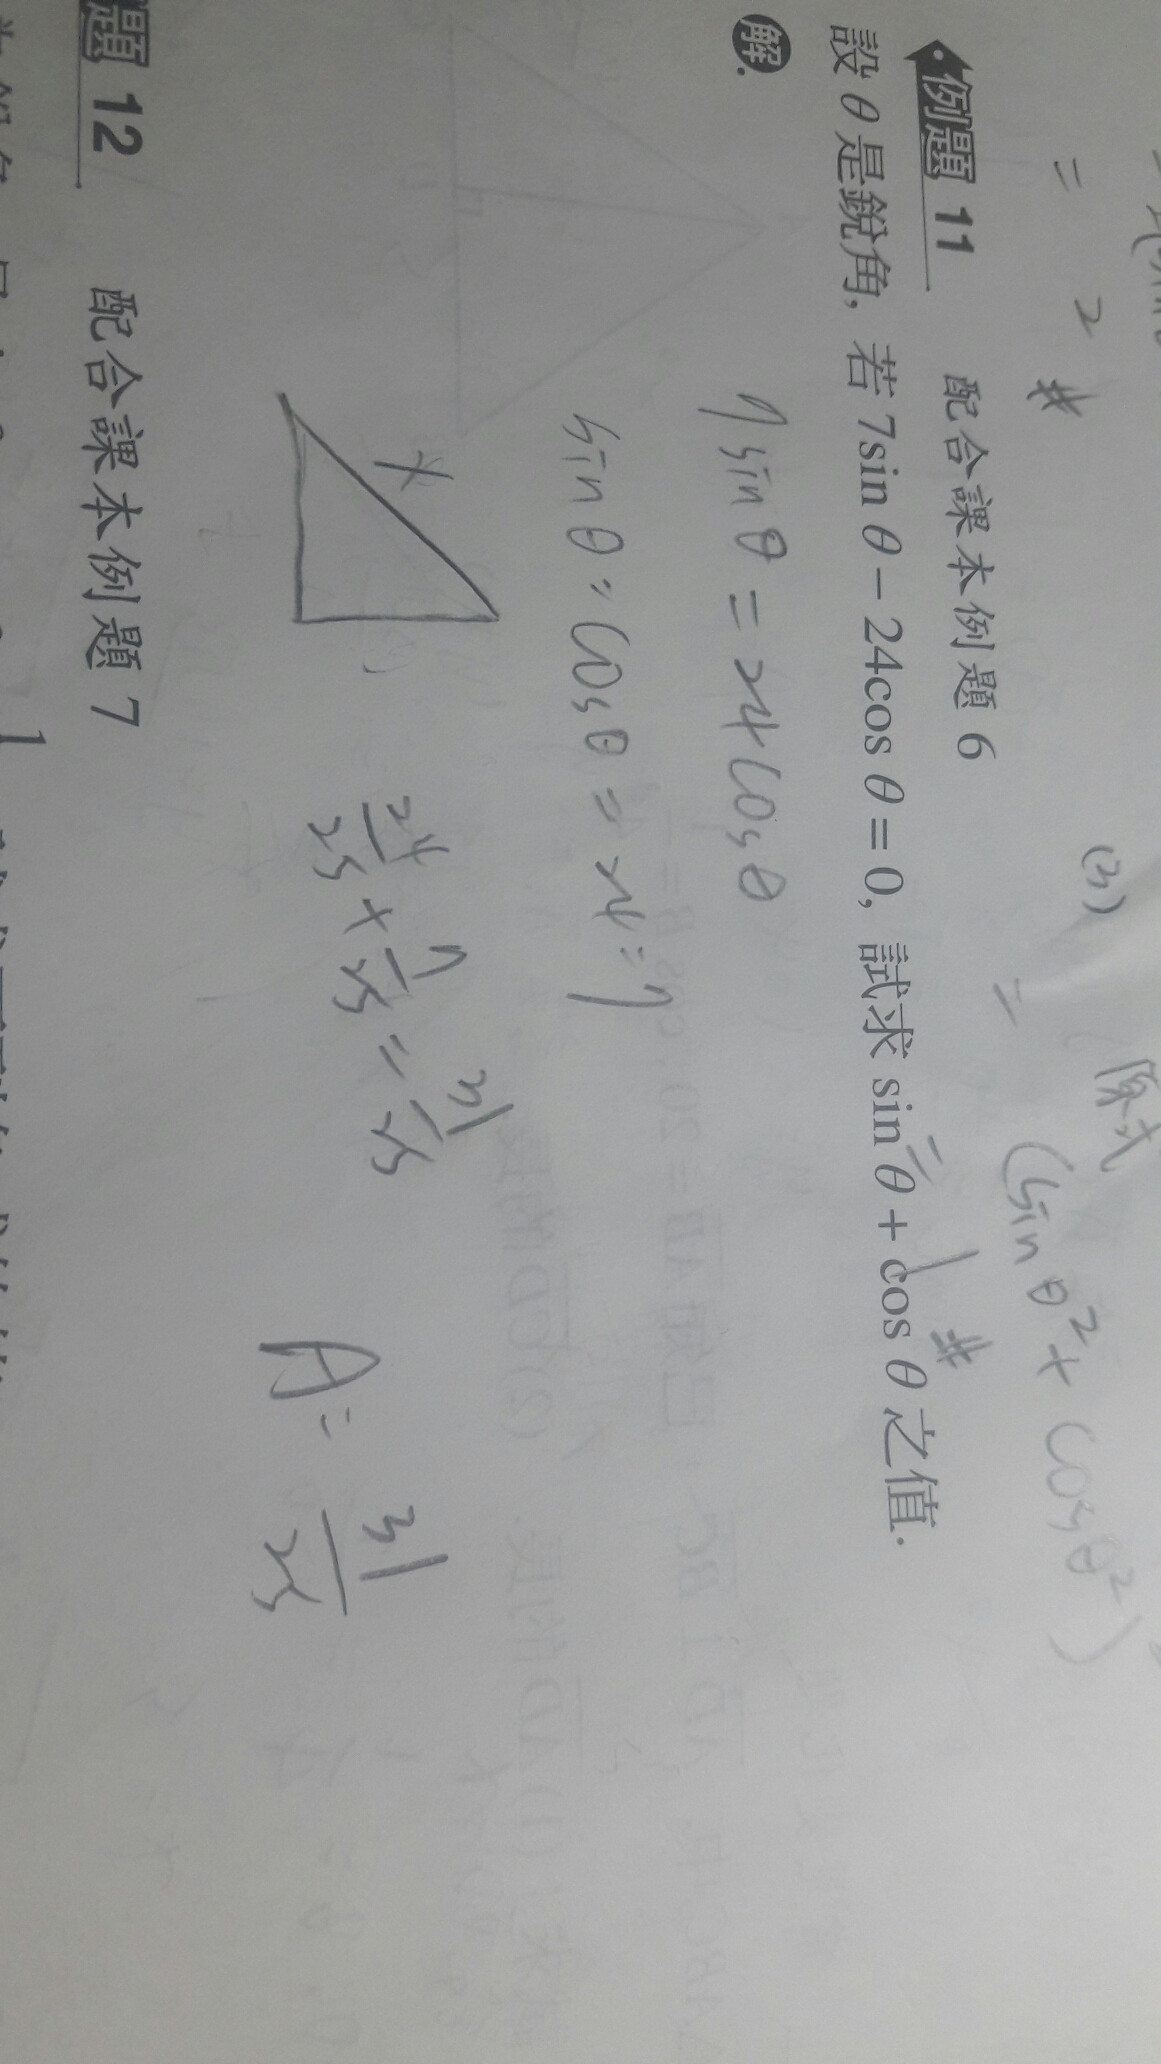 = 2 #
(3) 原式
= (sin θ² + cos θ²)
= 1 #
例題 11 配合課本例題 6
設 θ 是銳角, 若 7sin θ − 24cos θ = 0, 試求 sin θ + cos θ 之值.
解.
7 sin θ = 24 cos θ
sin θ : cos θ = 24 : 7
24/25 + 7/25 = 31/25
A: 31/25
題 12 配合課本例題 7